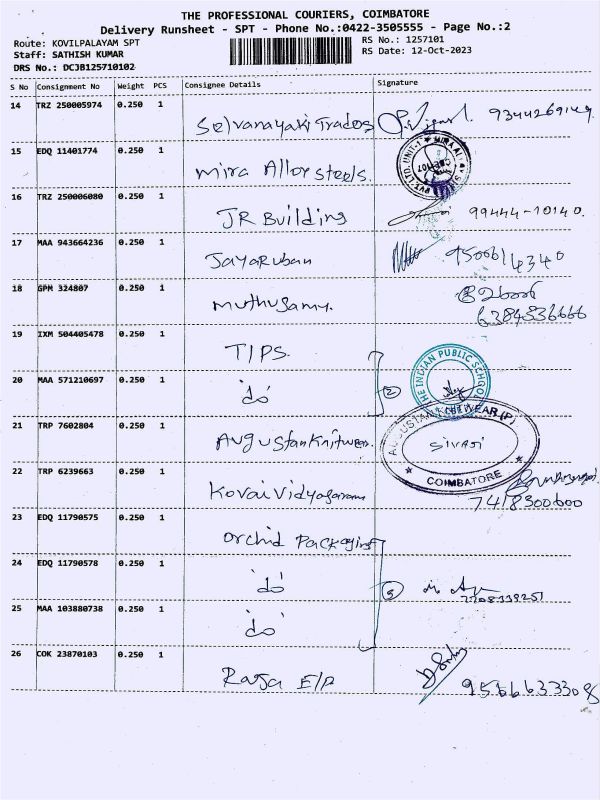 THE PROFESSIONAL COURIERS, COIMBATORE
Delivery Runsheet - SPT - Phone No.:0422-3505555 - Page No.:2
Route: KOVILPALAYAM SPT
Staff: SATHISH KUMAR
DRS No.: DCJB125710102
RS No.: 1257101
RS Date: 12-Oct-2023
S No Consignment No Weight PCS Consignee Details Signature
14 TRZ 250005974 0.250 1 Selvanayaki Trados 9344269149
15 EDQ 11401774 0.250 1 Mira Alloy steels.
16 TRZ 250006080 0.250 1 JR Building 99444-10140
17 MAA 943664236 0.250 1 Jayaruban 9500614340
18 GPM 324807 0.250 1 Muthusamy. 6384336666
19 IXM 504405478 0.250 1 TIPS.
20 MAA 571210697 0.250 1 do 2
THE INDIAN PUBLIC SCHOOL
21 TRP 7602804 0.250 1 Augustan Knitwear.
AUGUSTAN KNITWEAR (P)
SIVAJI
COIMBATORE
22 TRP 6239663 0.250 1 Kovai Vidyasaram 7418300600
23 EDQ 11790575 0.250 1 Orchid Packaging
24 EDQ 11790578 0.250 1 do 3
25 MAA 103880738 0.250 1 do
26 COK 23870103 0.250 1 Raja E/P 9566633308